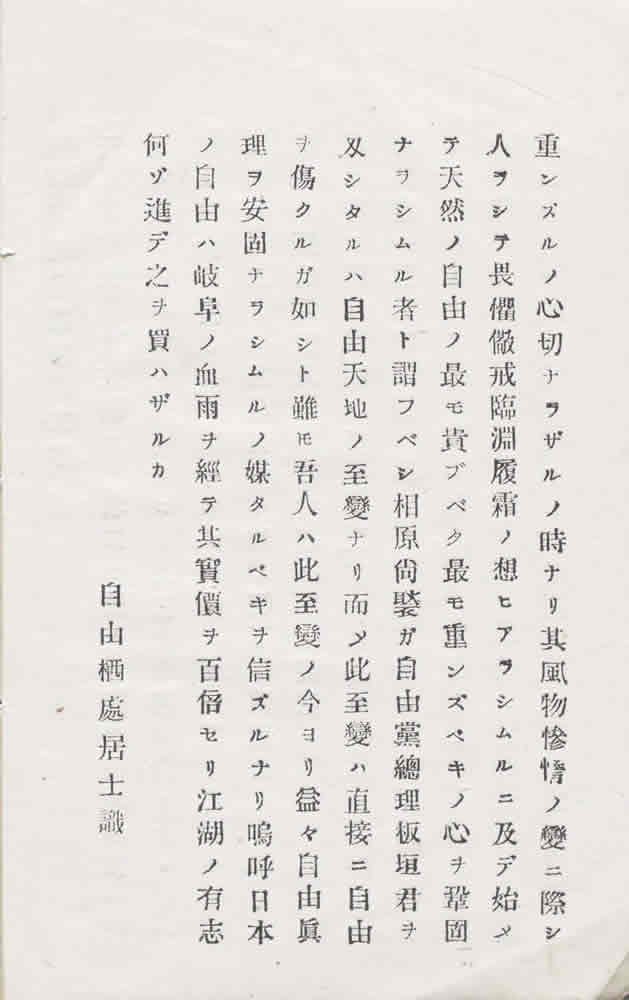 重ンズルノ心切ナラザルノ時ナリ其風物慘憺ノ變ニ際シ
人ヲシテ畏懼儆戒臨淵履霜ノ想ヒアラシムルニ及デ始メ
テ天然ノ自由ノ最モ貴ブベク最モ重ンズベキノ心ヲ鞏固
ナラシムル者ト謂フベシ相原尙褧ガ自由黨總理板垣君ヲ
刄シタルハ自由天地ノ至變ナリ而乄此至變ハ直接ニ自由
ヲ傷クルガ如シト雖モ吾人ハ此至變ノ今ヨリ益々自由眞
理ヲ安固ナラシムルノ媒タルベキヲ信ズルナリ嗚呼日本
ノ自由ハ岐阜ノ血雨ヲ經テ其實價ヲ百倍セリ江湖ノ有志
何ゾ進デ之ヲ買ハザルカ
自由栖處居士識